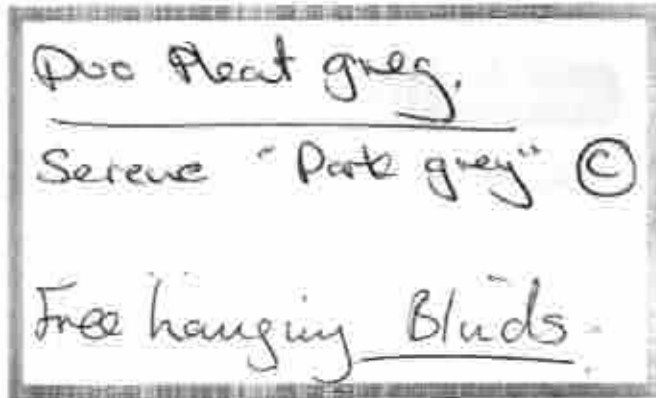 Duo Pleat grey.
Serene "Dark grey" ©
Free hanging Blinds.